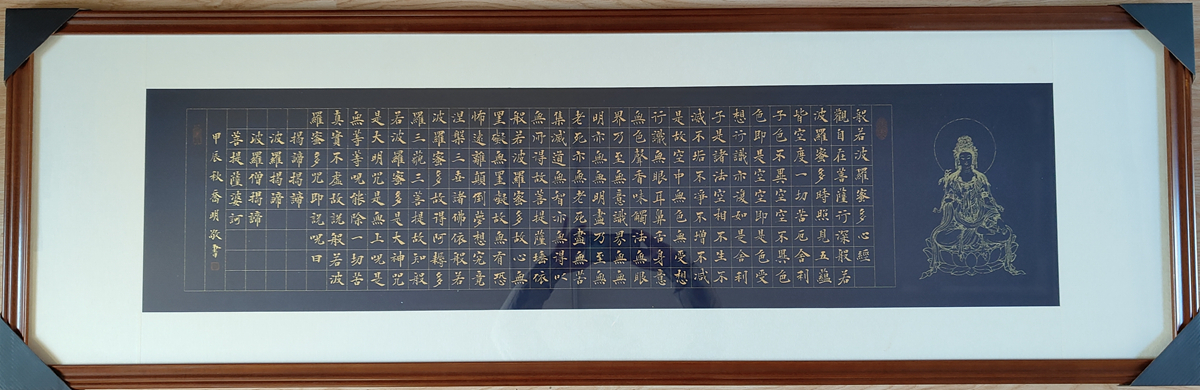 般若波羅蜜多心經
觀自在菩薩行深般若
波羅蜜多時照見五蘊
皆空度一切苦厄舍利
子色不異空空不異色
色即是空空即是色受
想行識亦復如是舍利
子是諸法空相不生不
滅不垢不淨不增不減
是故空中無色無受想
行識無眼耳鼻舌身意
無色聲香味觸法無眼
界乃至無意識界無無
明亦無無明盡乃至無
老死亦無老死盡無苦
集滅道無智亦無得以
無所得故菩提薩埵依
般若波羅蜜多故心無
罣礙無罣礙故無有恐
怖遠離顛倒夢想究竟
涅槃三世諸佛依般若
波羅蜜多故得阿耨多
羅三藐三菩提故知般
若波羅蜜多是大神咒
是大明咒是無上呪是
無等等呪能除一切苦
真實不虛故說般若波
羅蜜多咒即說呪曰
揭諦揭諦
波羅揭諦
波羅僧揭諦
菩提薩婆訶
甲辰秋喬明敬書